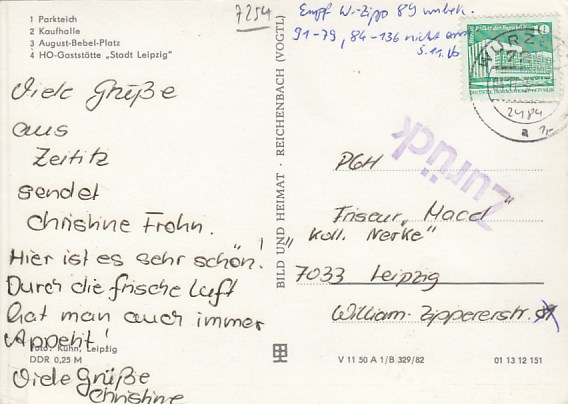 1 Parkteich
2 Kaufhalle
3 August-Bebel-Platz
4 HO-Gaststätte „Stadt Leipzig"
Viele Grüße
aus
Zeititz
sendet
Christine Frohn.
Hier ist es sehr schön!
Durch die frische Luft
hat man auch immer
Appetit!
Viele Grüße
Christine
Foto: Kühn, Leipzig
DDR 0,25 M
BILD UND HEIMAT · REICHENBACH (VOGTL)
7254
Empf W.-Zipp 89 unbek.
91-79, 84-136 nicht
5.11.
10
WURZEN
a
Zurück
PGH
Friseur „Macd"
"Koll. Nerke"
7033 Leipzig
William-Zippererstr.
V 11 50 A 1/B 329/82
01 13 12 151